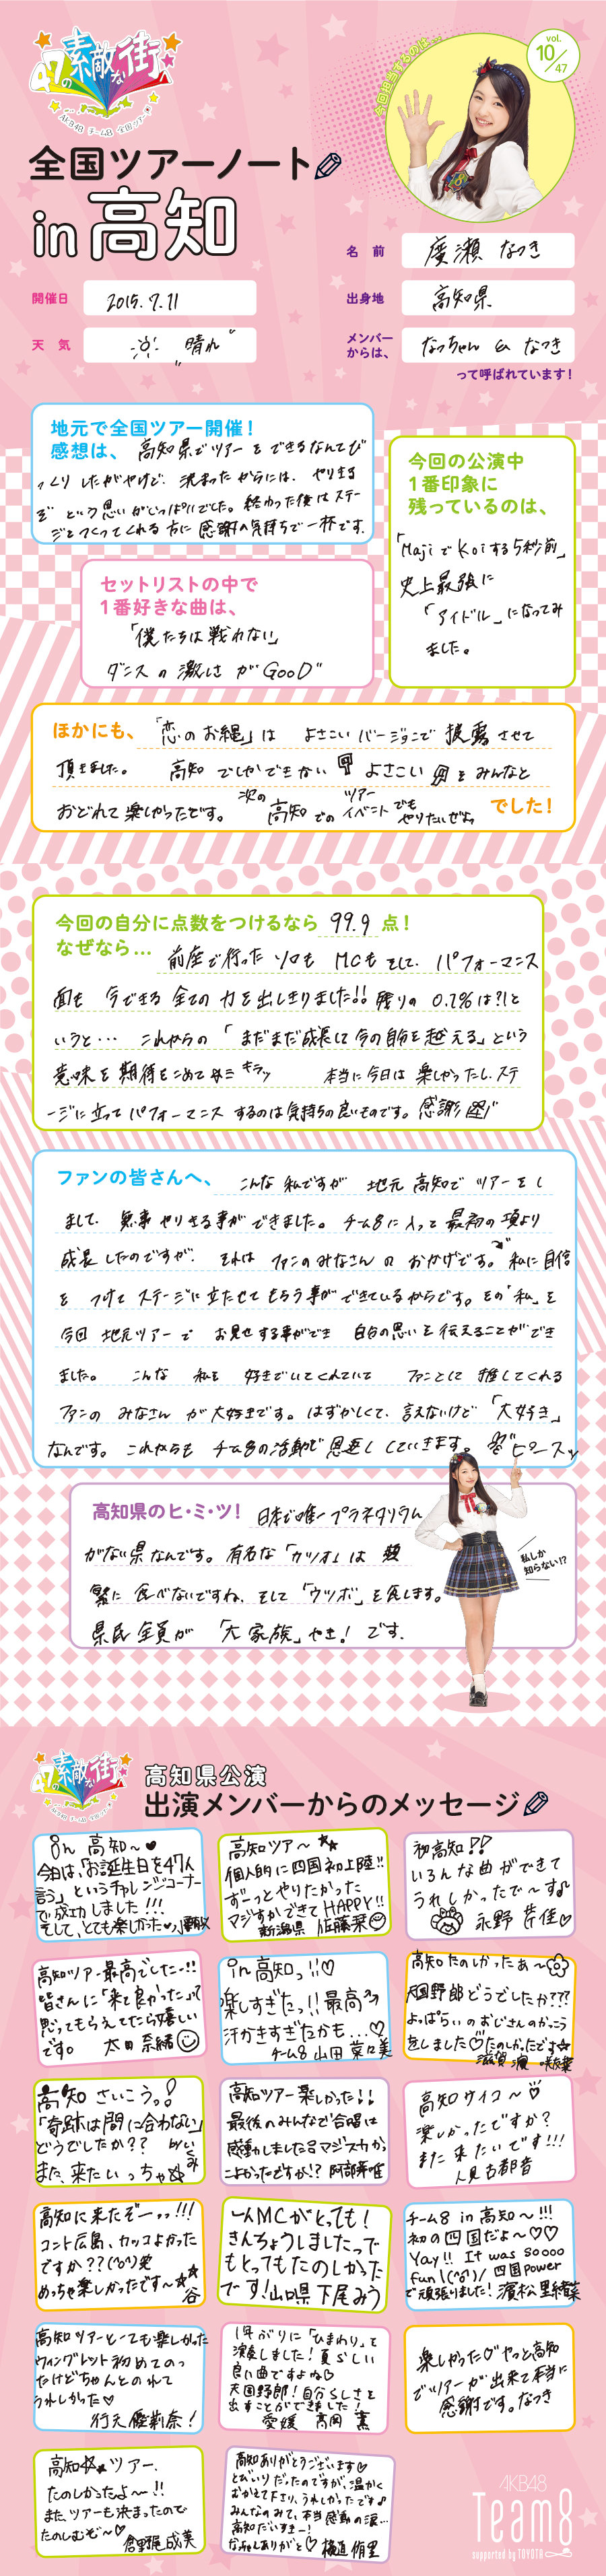 今回担当するのは…
vol.
10/47
47の素敵な街へ
AKB48 チーム8 全国ツアー
全国ツアーノート
in 高知
名 前 廣瀬 なつき
開催日 2015.7.11
出身地 高知県
天 気 晴れ
メンバー
からは、
なっちゃん & なつき
って呼ばれています！
地元で全国ツアー開催！
感想は、 高知県でツアーをできるなんてび
っくりしたがやけど、決まったからには、やりきる
ぞ という思いがいっぱいでした。終わった後はステー
ジをつくってくれる方に感謝の気持ちで一杯です。
今回の公演中
1番印象に
残っているのは、
「MajiでKoiする5秒前」
史上最強に
「アイドル」になってみ
ました。
セットリストの中で
1番好きな曲は、
「僕たちは戦わない」
ダンスの激しさがGooD"
ほかにも、 「恋のお縄」は よさこいバージョンで 披露させて
頂きました。 高知でしかできない よさこい をみんなと
おどれて楽しかったです。 次の高知での ツアーイベントでも やりたいぜよ でした！
今回の自分に点数をつけるなら 99.9 点！
なぜなら… 前座で行ったソロも MCもそして、パフォーマンス
面も 今できる全ての力を出しきりました!! 残りの0.1%は?!と
いうと… これからの「まだまだ成長して今の自分を越える」という
意味を期待をこめて キラッ 本当に今日は楽しかったし、ステ
ージに立ってパフォーマンスするのは気持ちの良いものです。感謝
ファンの皆さんへ、 こんな私ですが 地元高知でツアーをし
まして、無事やりきる事ができました。チーム8に入って最初の頃より
成長したのですが、それは ファンのみなさんのおかげです。私に自信
を つけてステージに立たせてもらう事ができているからです。その「私」を
今回 地元ツアーで お見せする事ができ 自分の思いを伝えることができ
ました。 こんな 私を 好きでいてくれていて ファンとして 推してくれる
ファンの みなさん が大好きです。はずかしくて、言えないけど「大好き」
なんです。これからも チーム8の活動で恩返し していきます。 ピースッ
高知県のヒ・ミ・ツ！ 日本で唯一プラネタリウム
がない県なんです。有名な「カツオ」は 頻
繁に 食べないですね。そして「ウツボ」を食します。
県民全員が「大家族」やき！です。
私しか
知らない!?
47の素敵な街へ
AKB48 チーム8 全国ツアー
高知県公演
出演メンバーからのメッセージ
in 高知〜
今日は、「お誕生日を47人
言う」というチャレンジコーナー
で成功しました!!!
そして、とても楽しかった
高知ツアー〜
個人的に四国初上陸!!
ずーっとやりたかった
マジすかできてHAPPY!!
新潟県 佐藤栞
初高知!!
いろんな曲ができて
うれしかったで〜す♪
永野 芹佳♡
高知ツアー最高でしたー!!
皆さんに「来て良かった」って
思ってもらえてたら嬉しい
です。 太田奈緒
in高知っ!!♡
楽しすぎたっ!!最高
汗かきすぎたかも...♡
チーム8 山田菜々美
高知たのしかったぁ〜
天国野郎どうでしたか???
よっぱらいのおじさんのかっこう
をしました♡たのしかったです☆
滋賀 濵 咲友菜
高知 さいこうっ!
「奇跡は間に合わない」
どうでしたか?? byいくみ
また、来たいっちゃ
高知ツアー楽しかった!!
最後のみんなで合唱は
感動しました マジスカかっ
こよかったですか!? 阿部芽唯
高知サイコ〜
楽しかったですか?
また来たいです!!!
人見古都音
高知に来たぞーっっ!!!
コント広島、カッコよかった
ですか??(^o^)
めっちゃ楽しかったです〜☆
谷
一人MCがとっても!
きんちょうしましたっで
もとってもたのしかった
です!山口県 下尾みう
チーム8 in 高知〜!!!
初の四国だよ〜♡♡
Yay!! It was soooo
fun!(^o^)/ 四国power
で頑張りました! 濵松里緒菜
高知ツアーと〜ても楽しかった
ウィングレット初めてのっ
たけどちゃんとのれて
うれしかった♡
行天優莉奈!
1年ぶりに「ひまわり」を
演奏しました! 夏らしい
良い曲ですよね♡
天国野郎!自分らしさを
出すことができました!
愛媛 高岡 薫
楽しかった♡やっと高知
でツアーが出来て本当に
感謝です。なつき
高知☆ツアー、
たのしかったよ〜!!
また、ツアーも決まったので
たのしむぞ〜♡ 倉野尾 成美
高知ありがとうございます♡
とびいりだったのですが、温かく
むかえて下さり、うれしかったです♪
みんなのみて、本当感動の涙...
高知だいすきー!
なっちゃんありがと♡ 横道侑里
AKB48
Team8
supported by TOYOTA